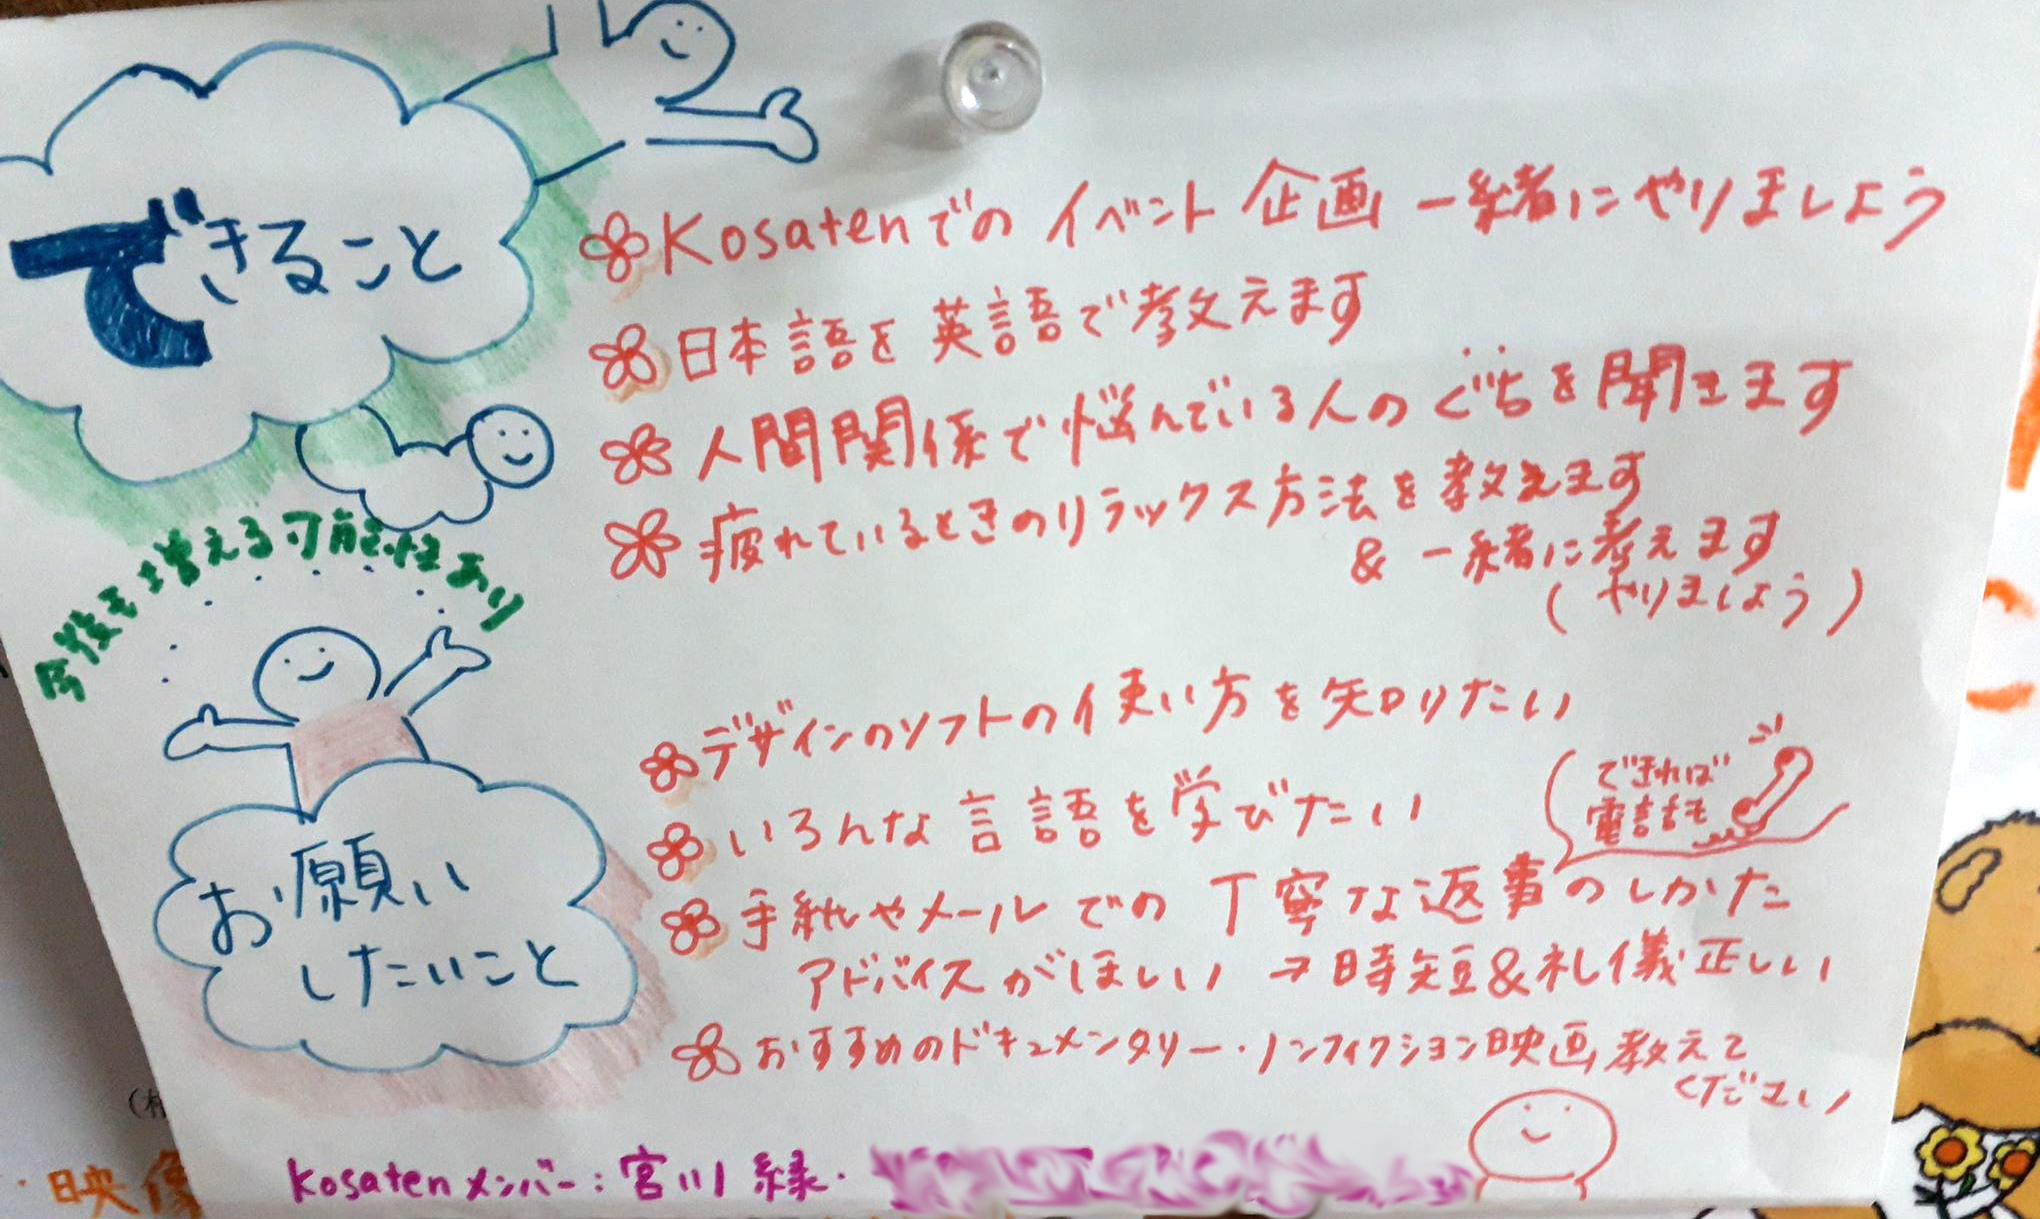 できること
Kosatenでの イベント 企画 一緒にやりましょう
日本語を 英語で教えます
人間関係で悩んでいる人の ぐちを聞きます
疲れているときのリラックス方法を教えます
& 一緒に考えます
(やりましょう)
今後も増える可能性あり
お願い
したいこと
デザインのソフトの使い方を知りたい
いろんな言語を学びたい
できれば
電話も
手紙やメールでの 丁寧な返事のしかた
アドバイスがほしい → 時短&礼儀正しい
おすすめのドキュメンタリー・ノンフィクション映画教えて
ください
Kosatenメンバー:宮川 緑・
・映像